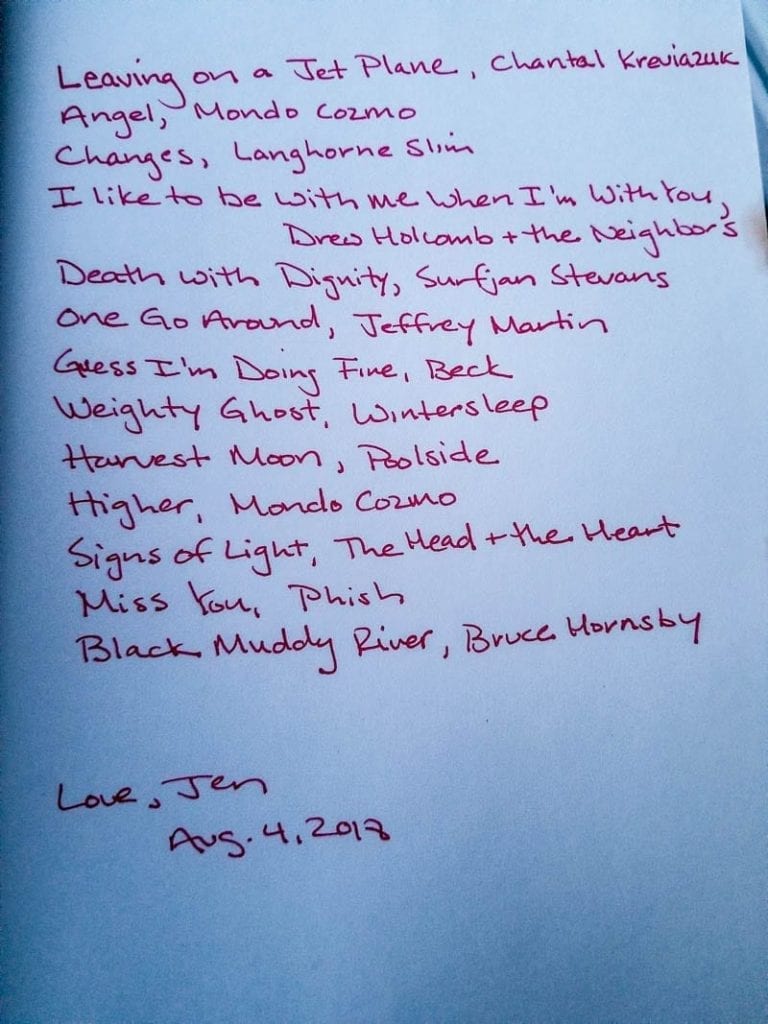 Leaving on a Jet Plane, Chantal Kreviazuk
Angel, Mondo Cozmo
Changes, Langhorne Slim
I like to be with me when I'm with You,
Drew Holcomb + the Neighbors
Death with Dignity, Surfjan Stevans
One Go Around, Jeffrey Martin
Guess I'm Doing Fine, Beck
Weighty Ghost, Wintersleep
Harvest Moon, Poolside
Higher, Mondo Cozmo
Signs of Light, The Head + the Heart
Miss You, Phish
Black Muddy River, Bruce Hornsby
Love, Jen
Aug. 4, 2018